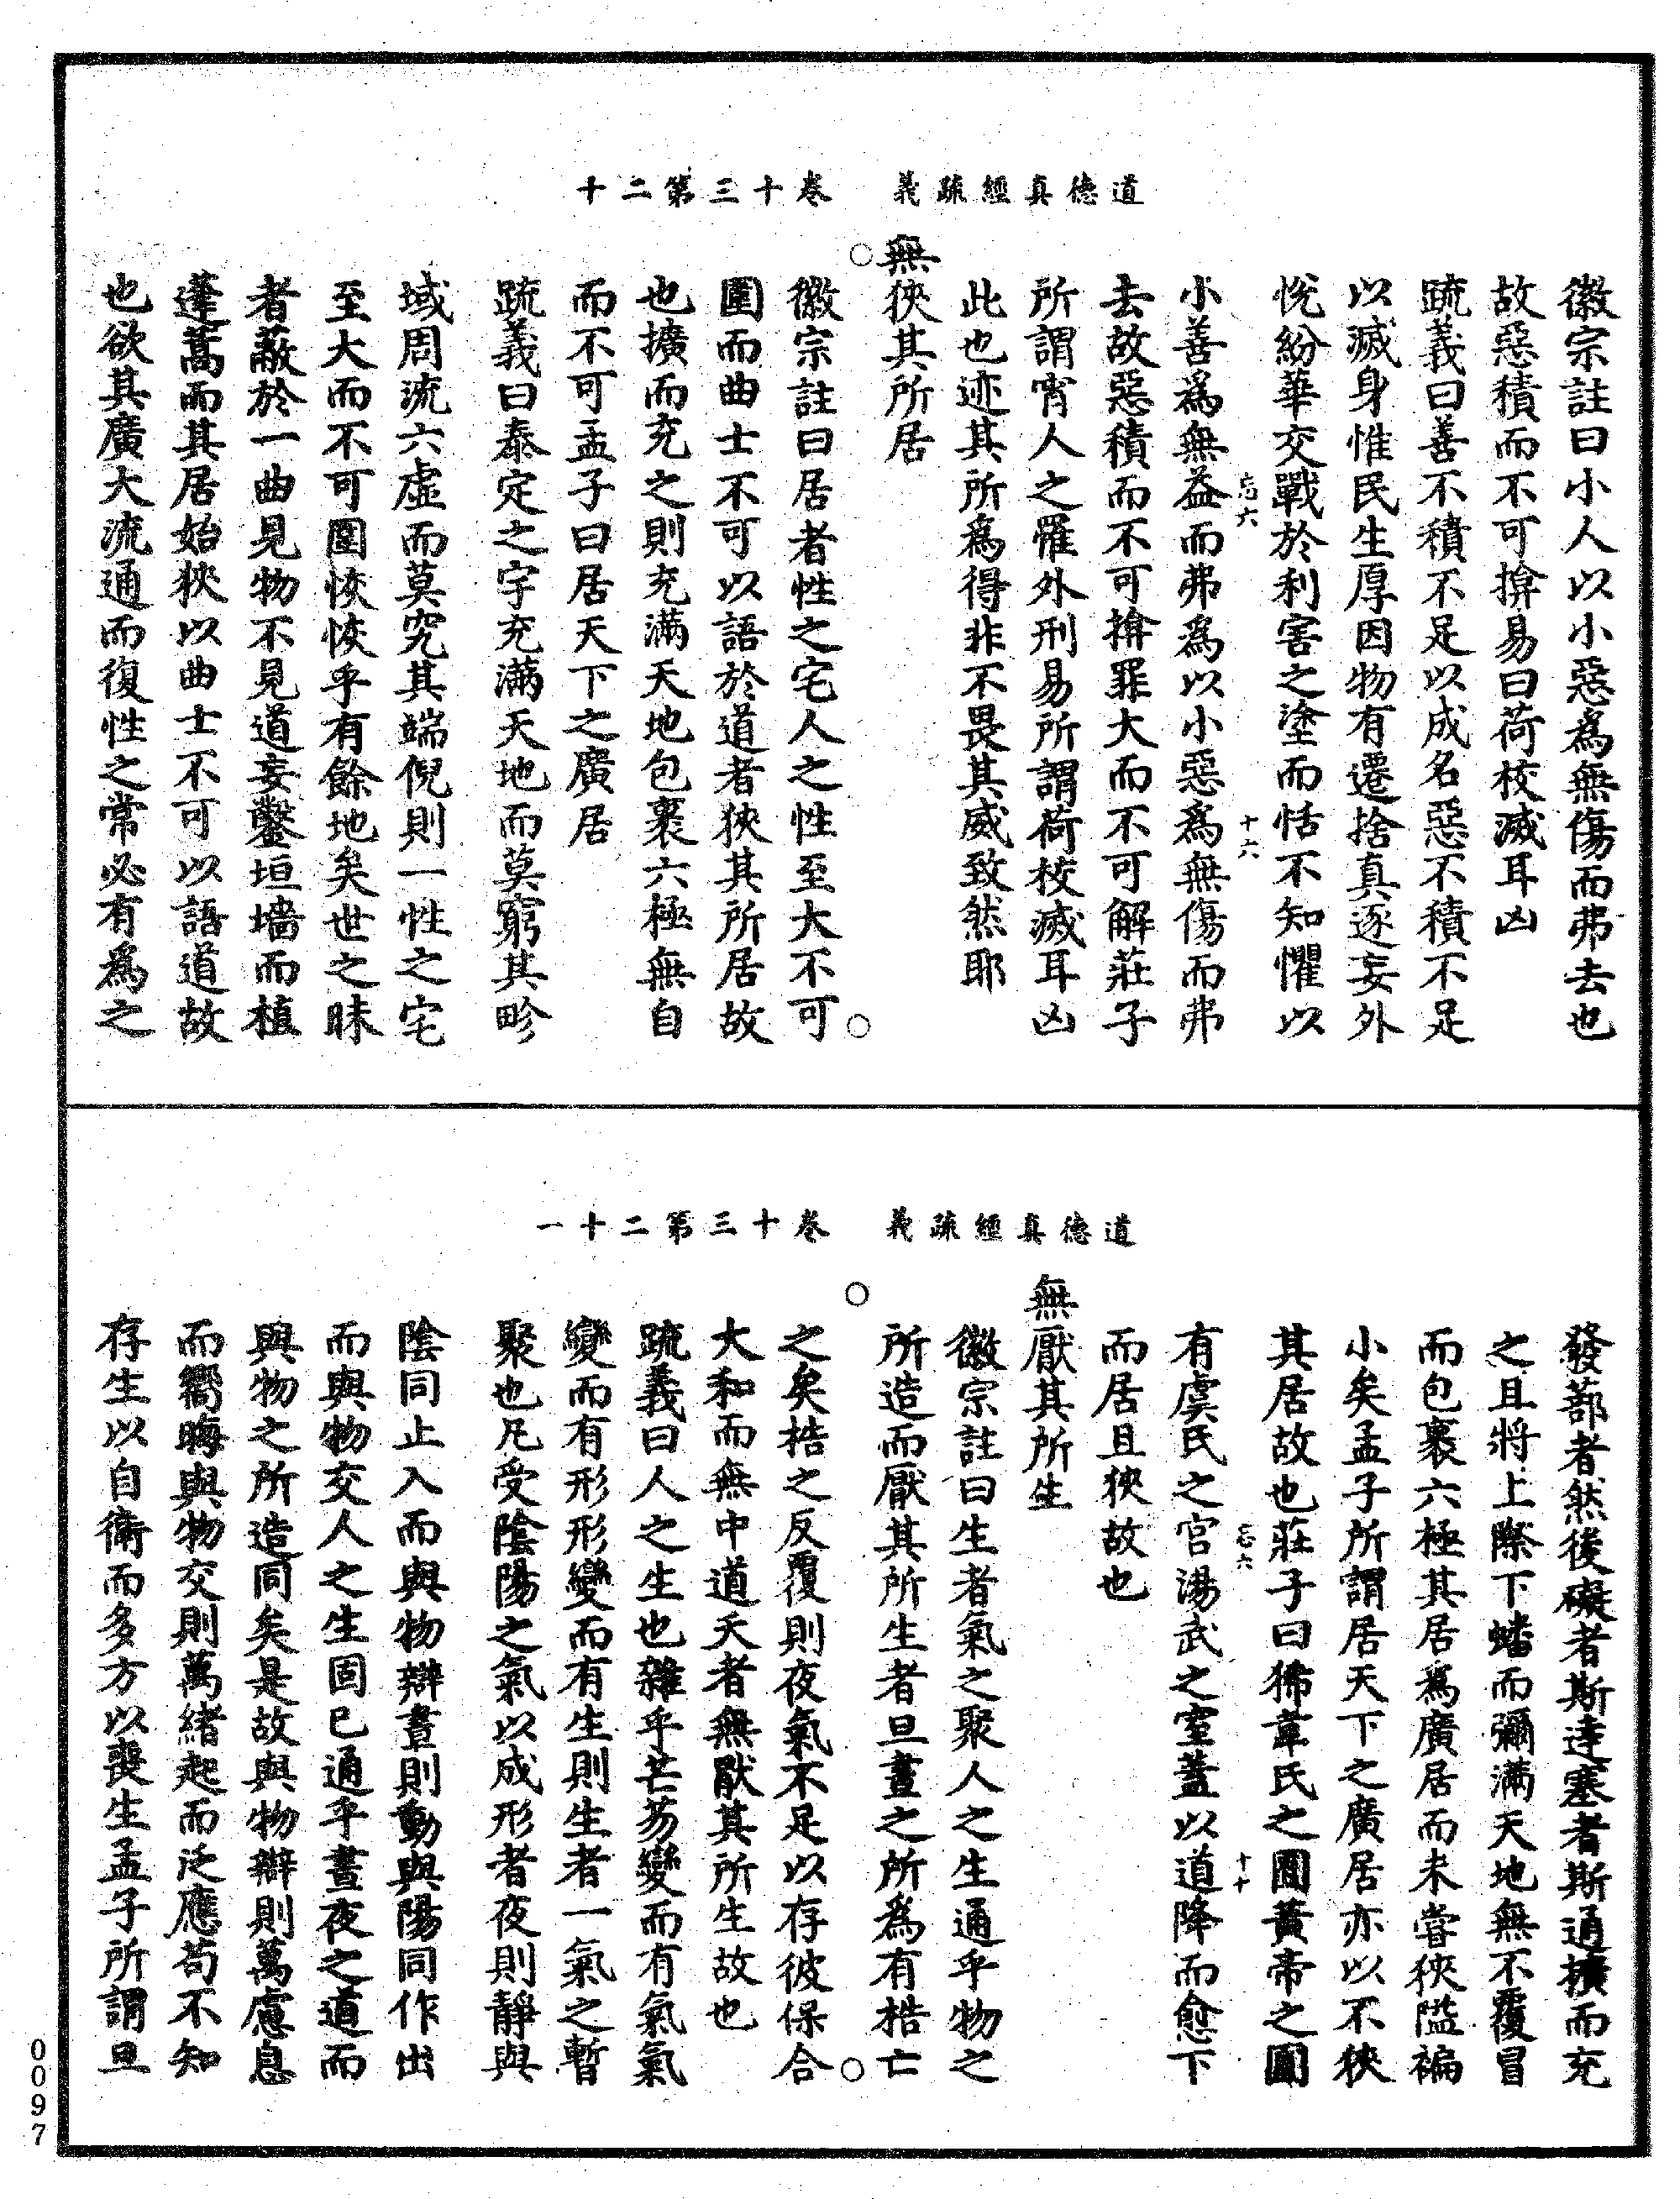 道德真經疏義　卷十三第二十
徽宗註曰小人以小惡爲無傷而弗去也
故惡積而不可揜易曰荷校滅耳凶
疏義曰善不積不足以成名惡不積不足
以滅身惟民生厚因物有遷捨真逐妄外
悅紛華交戰於利害之塗而恬不知懼以
忘六　十六
小善爲無益而弗爲以小惡爲無傷而弗
去故惡積而不可揜罪大而不可解莊子
所謂宵人之罹外刑易所謂荷校滅耳凶
此也迹其所爲得非不畏其威致然耶
無狹其所居
徽宗註曰居者性之宅人之性至大不可
圍而曲士不可以語於道者狹其所居故
也擴而充之則充滿天地包裹六極無自
而不可孟子曰居天下之廣居
疏義曰泰定之宇充滿天地而莫窮其畛
域周流六虛而莫究其端倪則一性之宅
至大而不可圍恢恢乎有餘地矣世之昧
者蔽於一曲見物不見道妄鑿垣墻而植
蓬蒿而其居始狹以曲士不可以語道故
也欲其廣大流通而復性之常必有爲之
道德真經疏義　卷十三第二十一
發蔀者然後礙者斯達塞者斯通擴而充
之且將上際下蟠而彌滿天地無不覆冒
而包裹六極其居爲廣居而未嘗狹隘褊
小矣孟子所謂居天下之廣居亦以不狹
其居故也莊子曰狶韋氏之囿黃帝之圃
忘六　十七
有虞氏之宮湯武之室蓋以道降而愈下
而居且狹故也
無厭其所生
徽宗註曰生者氣之聚人之生通乎物之
所造而厭其所生者旦晝之所爲有梏亡
之矣梏之反覆則夜氣不足以存彼保合
大和而無中道夭者無厭其所生故也
疏義曰人之生也雜乎芒芴變而有氣氣
變而有形形變而有生則生者一氣之暫
聚也凡受陰陽之氣以成形者夜則靜與
陰同止入而與物辯晝則動與陽同作出
而與物交人之生固已通乎晝夜之道而
與物之所造同矣是故與物辯則萬慮息
而嚮晦與物交則萬緒起而泛應苟不知
存生以自衛而多方以喪生孟子所謂旦
0097